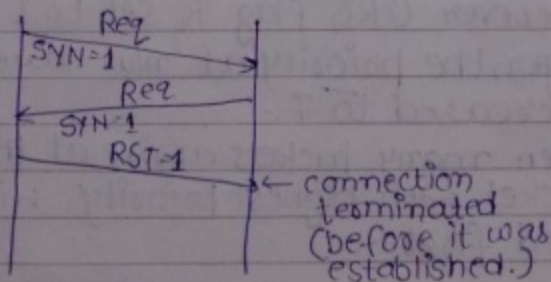 Req
SYN=1
Req
SYN=1
RST=1
← connection
terminated
(before it was
established.)